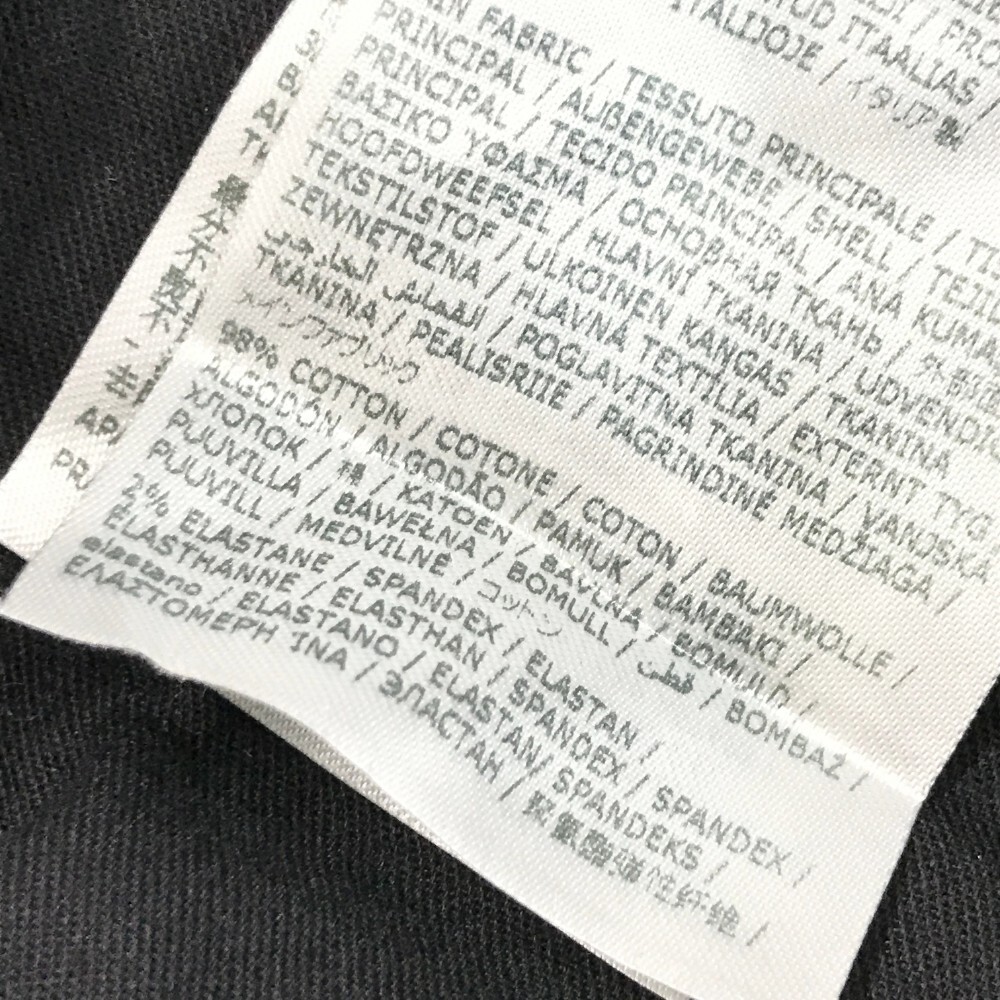 TUD ITAALIAS /
ITALIJOJE / イタリア製
FABRIC / TESSUTO PRINCIPALE /
PRINCIPAL / AUßENGEWEBE / SHELL /
PRINCIPAL / TECIDO PRINCIPAL / ANA KUMA
ΒΑΣΙΚΟ ΎΦΑΣΜΑ / ОСНОВНАЯ ТКАНЬ /
HOOFDWEEFSEL / HLAVNÍ TKANINA / UDVENDIG
TEKSTILSTOF / ULKOINEN KANGAS / TKANINA
ZEWNĘTRZNA / HLAVNÁ TEXTILIA / EXTERNT TYG
القماش الخارجي / POGLAVITNA TKANINA / VANJSKA
TKANINA / PEALISRIIE / PAGRINDINĖ MEDŽIAGA /
メインファブリック
98% COTTON / COTONE / COTON / BAUMWOLLE /
ALGODÓN / ALGODÃO / PAMUK / BAMBAKI /
ХЛОПОК / 棉 / KATOEN / BAVLNA / BOMULD /
PUUVILLA / BAWEŁNA / BOMULL / قطن / BOMBAŽ /
PUUVILL / MEDVILNĖ / コットン
2% ELASTANE / SPANDEX / ELASTAN /
ELASTHANNE / ELASTHAN / SPANDEX / SPANDEX /
elastano / ELASTANO / ELASTAN / SPANDEKS /
ΕΛΑΣΤΟΜΕΡΗ ΊΝΑ / ЭЛАСТАН / 聚氨酯弹性纤维 /